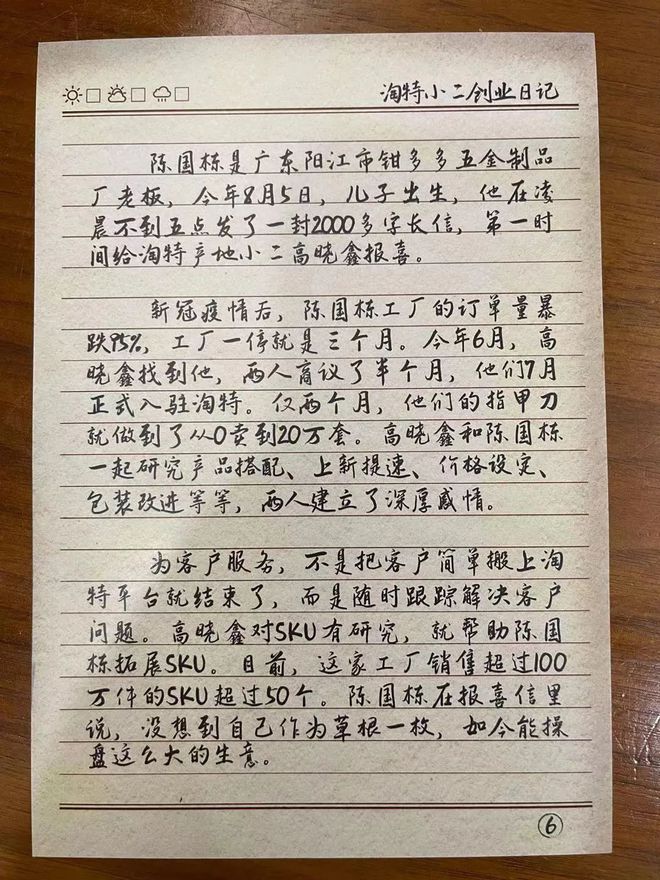 淘特小二创业日记
陈国栋是广东阳江市钳多多五金制品
厂老板，今年8月5日，儿子出生，他在凌
晨不到五点发了一封2000多字长信，第一时
间给淘特产地小二高晓鑫报喜。
新冠疫情后，陈国栋工厂的订单量暴
跌95%，工厂一停就是三个月。今年6月，高
晓鑫找到他，两人商议了半个月，他们7月
正式入驻淘特。仅两个月，他们的指甲刀
就做到了从0卖到20万套。高晓鑫和陈国栋
一起研究产品搭配、上新提速、价格设定、
包装改进等等，两人建立了深厚感情。
为客户服务，不是把客户简单搬上淘
特平台就结束了，而是随时跟踪解决客户
问题。高晓鑫对SKU有研究，就帮助陈国
栋拓展SKU。目前，这家工厂销售超过100
万件的SKU超过50个。陈国栋在报喜信里
说，没想到自己作为草根一枚，如今能操
盘这么大的生意。
6